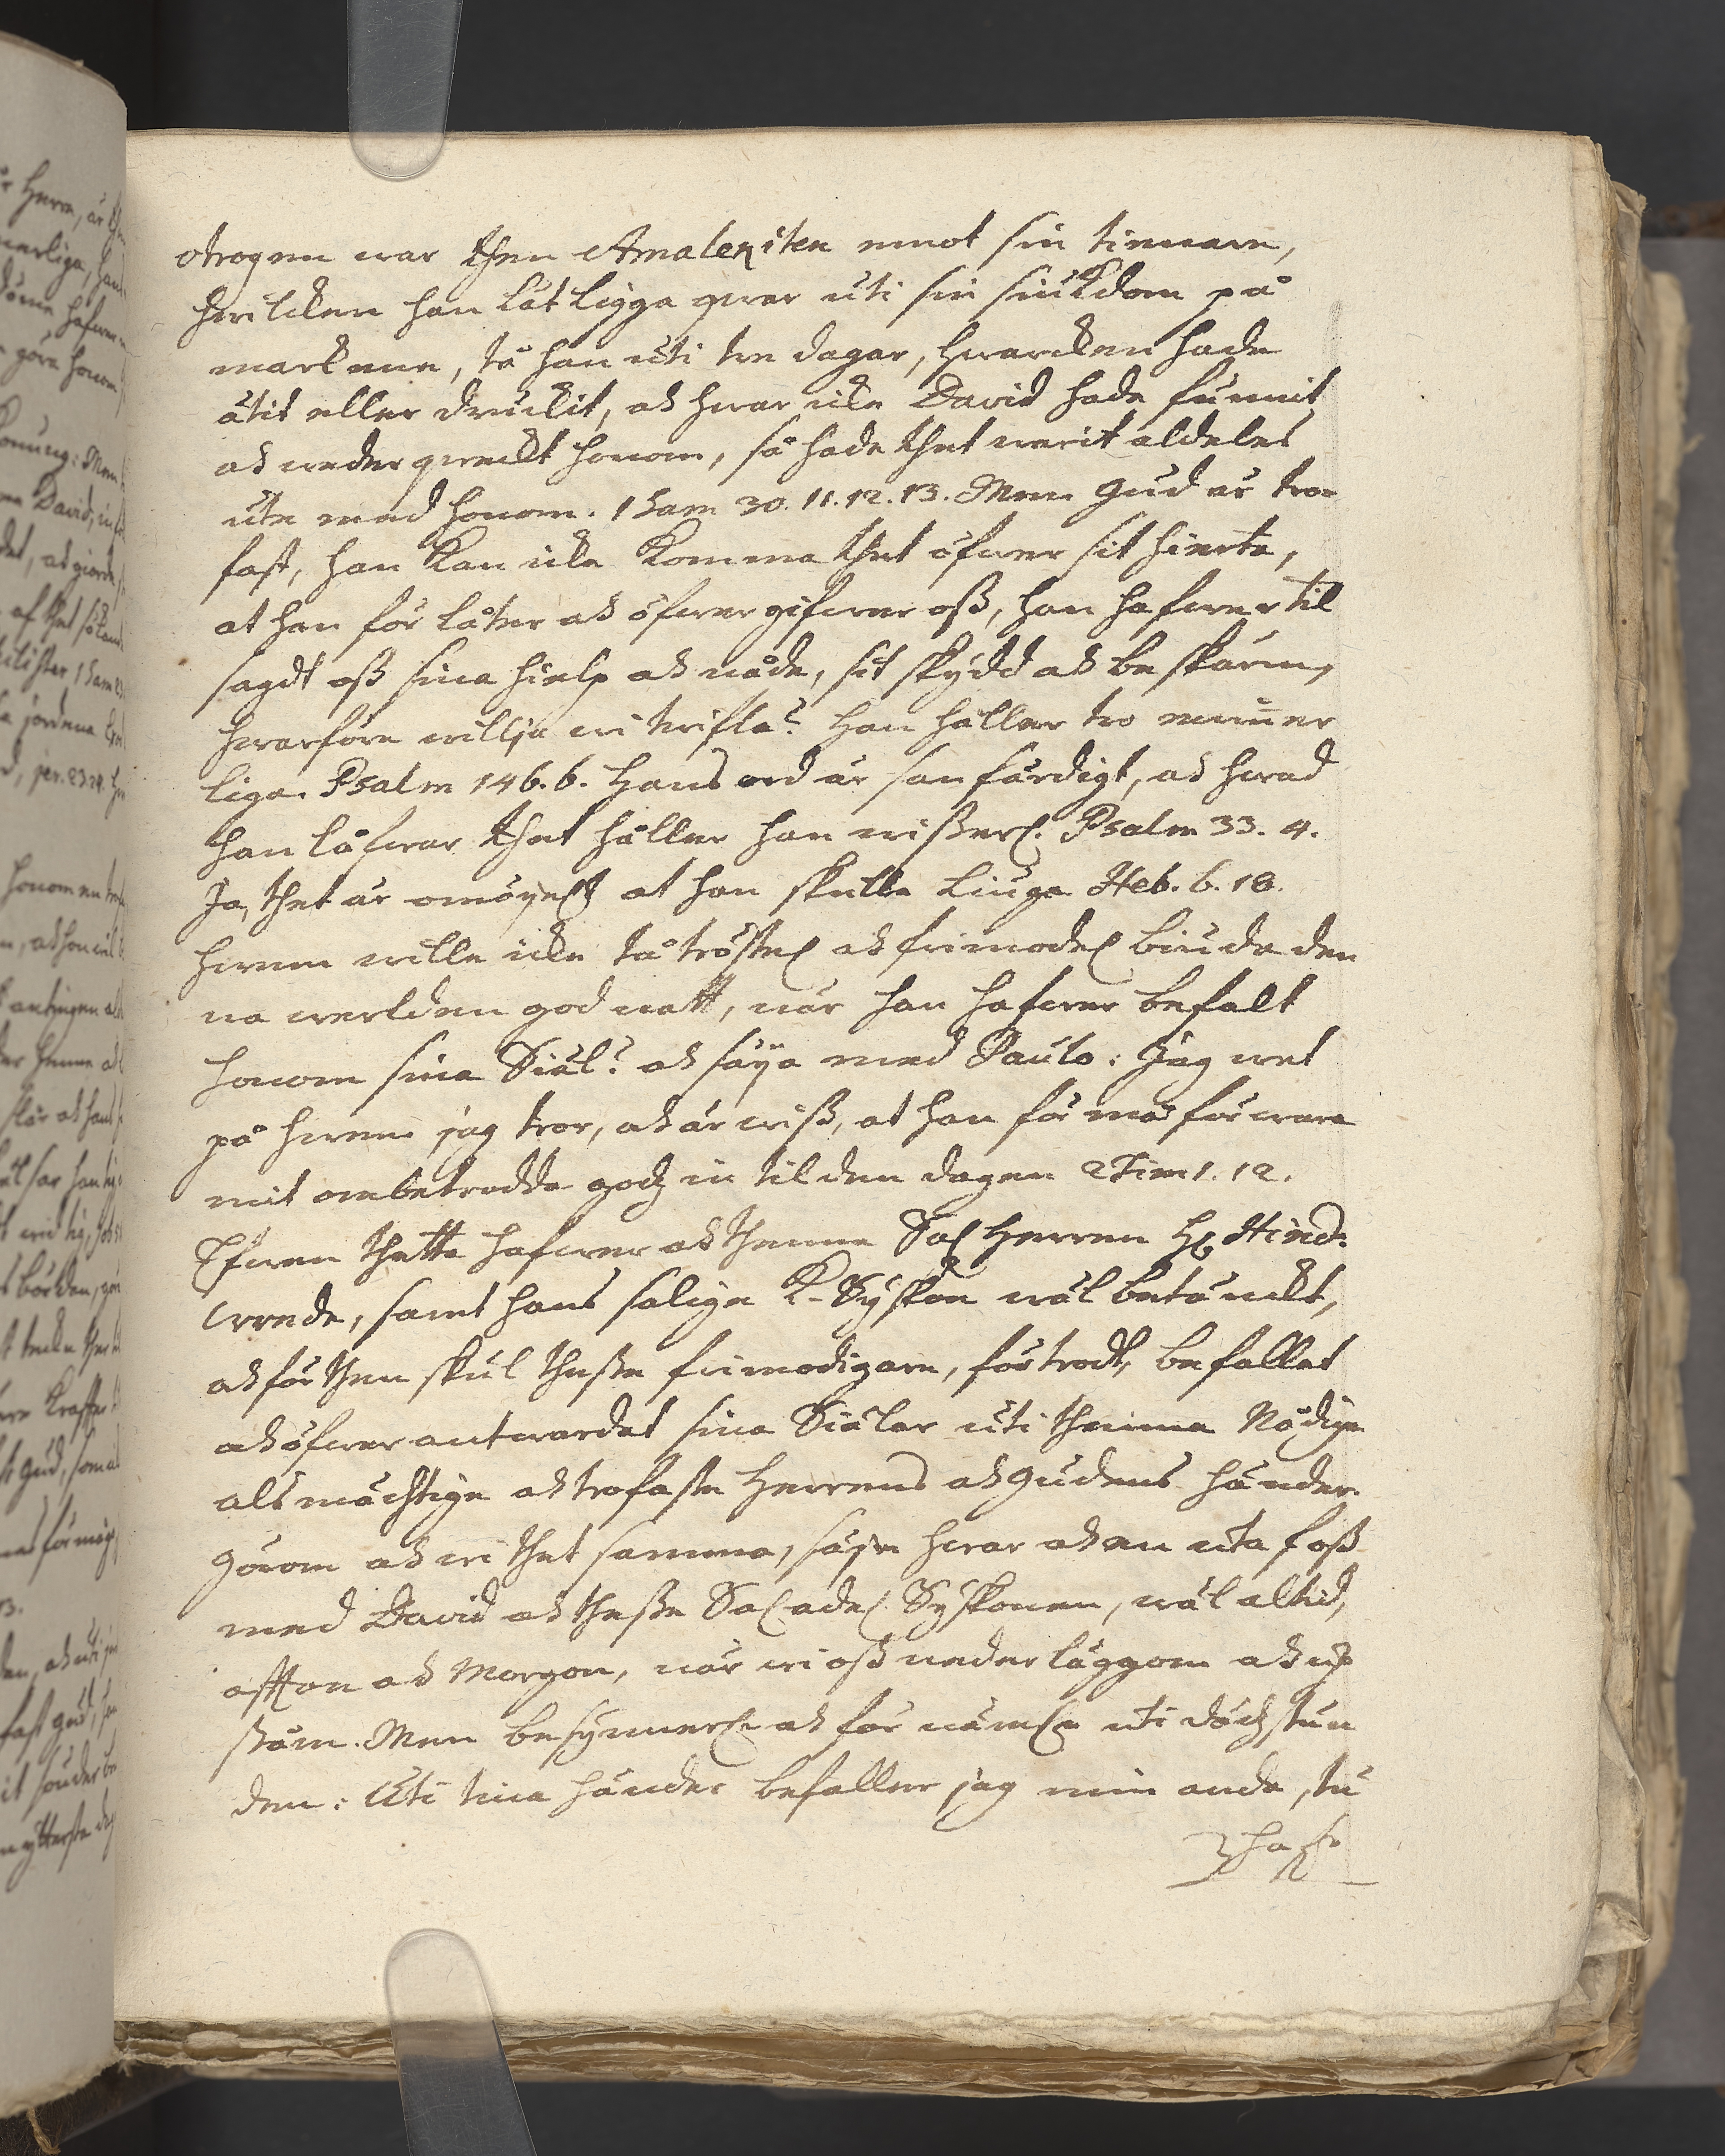 otrogen war then Amalekiten emot sin tienare,
hwilcken han lät liggia qwar uti sin siukdom på
markenne, tå han uti tre dagar, hwarcken hade
ätit eller druckit, ock hwar icke David hade funnit
ock wederqweckt honom, så hade thet warit aldeles
ute med honom. 1 Sam 30. 11. 12. 13. Men Gud är tro-
fast, han kan icke komma thet öfwer sit hierta,
at han förlåter ock öfwergifwer oss, han hafwer til
sagdt oss sina hielp ock nåde, sit skydd ock beskärm,
hwarföre willja wi twifla? Han håller tro ewiner
liga. Psalm 146. 6. Hans ord är sanfärdigt, ock hwad
han låfwar thet håller han wisserl. Psalm 33. 4.
Ja, thet är omöyel. at han skulle liuga Heb. 6. 18.
Hwem wille icke tå tröstel. ock frimodel. biuda den
na werlden god natt, när han hafwer befalt
honom sina Siäl? ock säya med Paulo: Jag wet
på hwem jag tror, ock är wiss, at han förmå förwara
mit ombetrodda godz in til den dagen 2 Tim 1. 12.
Efwen thetta hafwer ock thenne Sal Herren Hr Hind:
Wrede, samt hans salige K. Syskon wäl betänckt,
ock för then skul thesse frimodigare, förtrodt, befallat
ock öfwerantwardat sina Siälar uti thenna Nådige
alsmächtige ock trofaste Herrens ock Gudens händer.
Görom ock wi thet samma, säyen hwar ock en utaf oss
med David ock thesse Sal adel. Syskonen, wäl altid,
affton ock Morgon, när wi oss nederläggom ock up
ståm. Men besynnerl. ock förnäml. uti dödzstun
den: Uti tina händer befaller jag min anda, tu
hafr